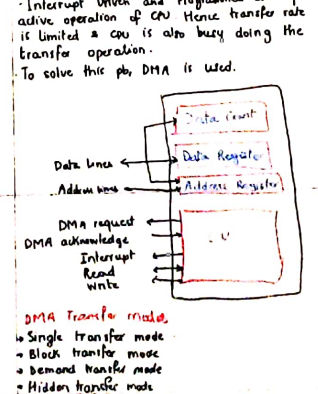 · Interrupt Driven and Programmed
active operation of CPU. Hence transfer rate
is limited & cpu is also busy doing the
transfer operation.
· To solve this pb, DMA is used.
Data Count
Data lines
Data Register
Address lines
Address Register
DMA request
DMA acknowledge
Interrupt
Read
Write
DMA Transfer modes
Single transfer mode
Block transfer mode
Demand transfer mode
Hidden transfer mode